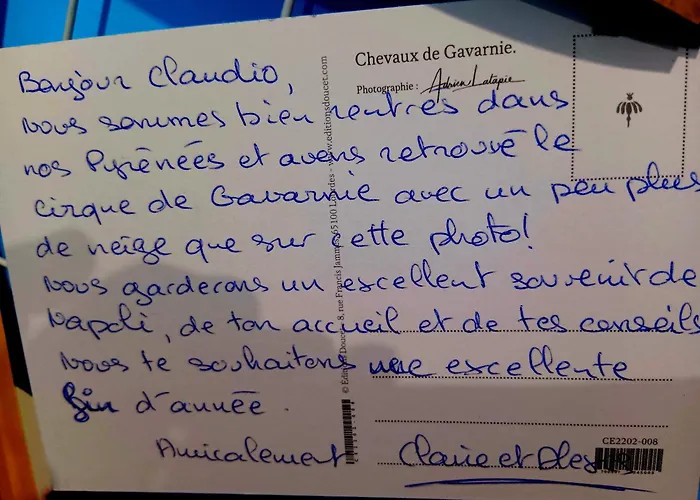 Chevaux de Gavarnie.
Photographie : Adrien Latapie
Bonjour Claudio,
nous sommes bien rentrés dans
nos Pyrénées et avons retrouvé le
cirque de Gavarnie avec un peu plus
de neige que sur cette photo!
Nous garderons un excellent souvenir de
Napoli, de ton accueil et de tes conseils
Nous te souhaitons une excellente
fin d'année.
Amicalement Claire et
© Editions Doucet - 8, rue Francis Jammes 65100 Lourdes - www.editionsdoucet.com
CE2202-008